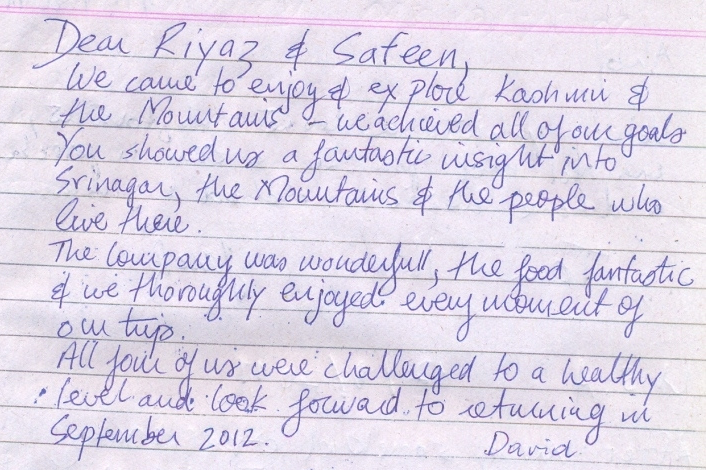 Dear Riyaz & Safeen,
We came to enjoy & explore Kashmir &
the Mountains - we achieved all of our goals
You showed us a fantastic insight into
Srinagar, the Mountains & the people who
live there.
The company was wonderfull, the food fantastic
& we thoroughly enjoyed every moment of
our trip.
All four of us were challenged to a healthy
level and look forward to returning in
September 2012.
David